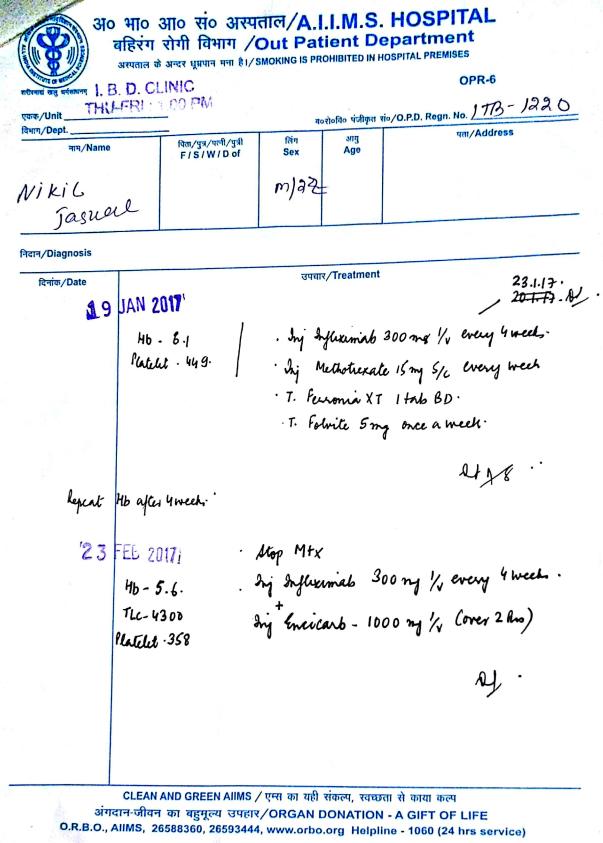 अ० भा० आ० सं० अस्पताल/A.I.I.M.S. HOSPITAL
बहिरंग रोगी विभाग /Out Patient Department
अस्पताल के अन्दर धूम्रपान मना है।/SMOKING IS PROHIBITED IN HOSPITAL PREMISES
OPR-6
I. B. D. CLINIC
THU-FRI : 1.00 PM
एकक/Unit
विभाग/Dept.
ब०रो०वि० पंजीकृत सं०/O.P.D. Regn. No. ITB-1220
नाम/Name
पिता/पुत्र/पत्नी/पुत्री
F / S / W / D of
लिंग
Sex
आयु
Age
पता/Address
Nikil
Jaswal
M/22
निदान/Diagnosis
दिनांक/Date
उपचार/Treatment
23.1.17.
20.1.17
19 JAN 2017
Hb - 8.1
Platelet - 449.
. Inj Infliximab 300 mg I/V every 4 weeks.
. Inj Methotrexate 15 mg S/C every week
. T. Ferronia XT 1 tab BD.
. T. Folvite 5 mg once a week.
Repeat Hb after 4 weeks.
23 FEB 2017
Hb - 5.6.
TLC - 4300
Platelet - 358
. Stop Mtx
. Inj Infliximab 300 mg I/V every 4 weeks.
+
Inj Encicarb - 1000 mg I/V (over 2 hrs)
CLEAN AND GREEN AIIMS / एम्स का यही संकल्प, स्वच्छता से काया कल्प
अंगदान-जीवन का बहुमूल्य उपहार/ORGAN DONATION - A GIFT OF LIFE
O.R.B.O., AIIMS, 26588360, 26593444, www.orbo.org Helpline - 1060 (24 hrs service)